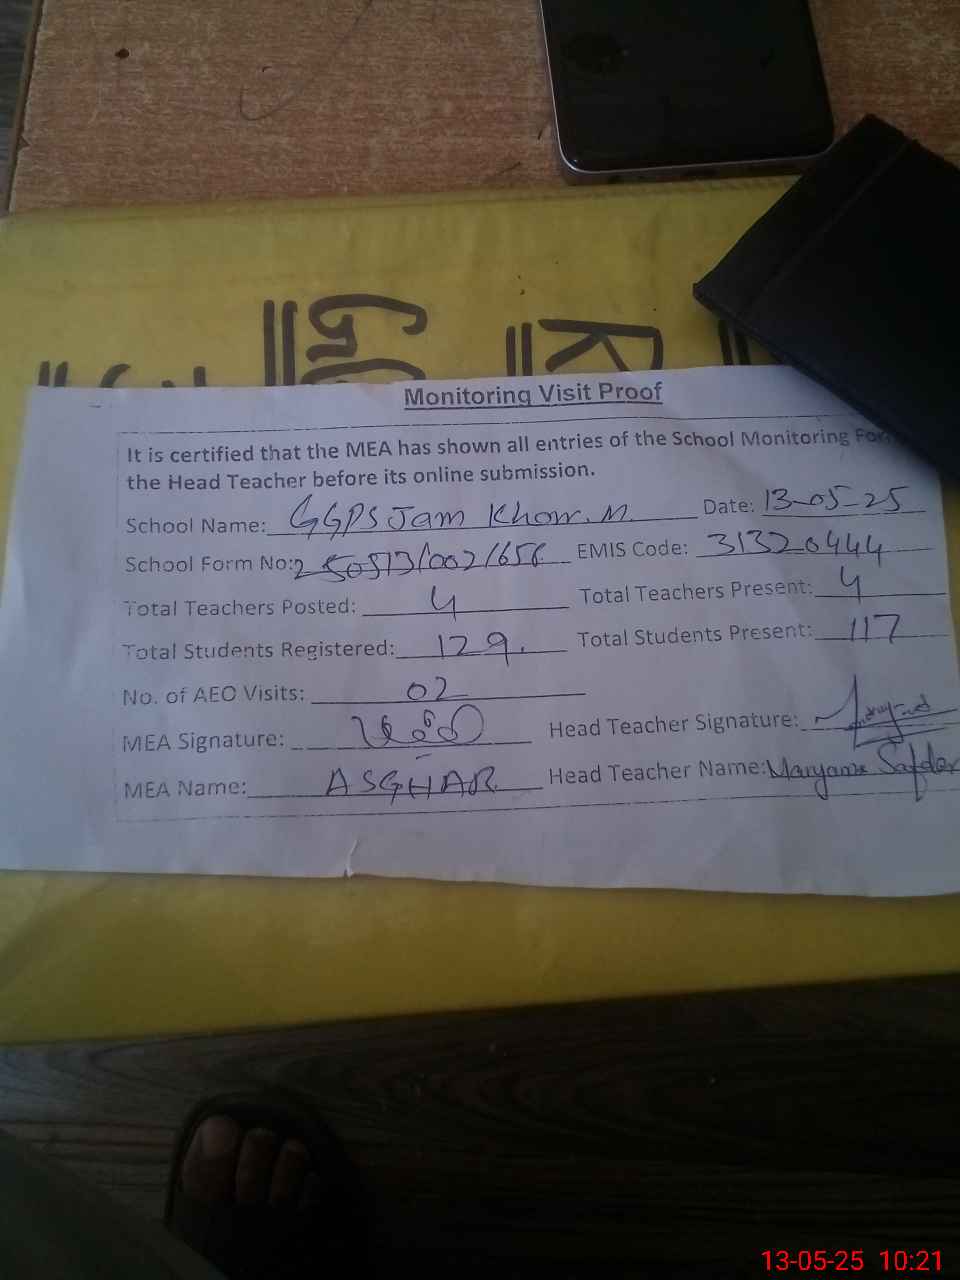 Monitoring Visit Proof
It is certified that the MEA has shown all entries of the School Monitoring
the Head Teacher before its online submission.
School Name: GGPS Jam Khour.M. Date: 13-05-25
School Form No: 250513/002/656 EMIS Code: 31320444
Total Teachers Posted: 4 Total Teachers Present: 4
Total Students Registered: 129. Total Students Present: 117
No. of AEO Visits: 02
MEA Signature: Head Teacher Signature:
MEA Name: ASGHAR Head Teacher Name: Maryam Safdar
13-05-25 10:21